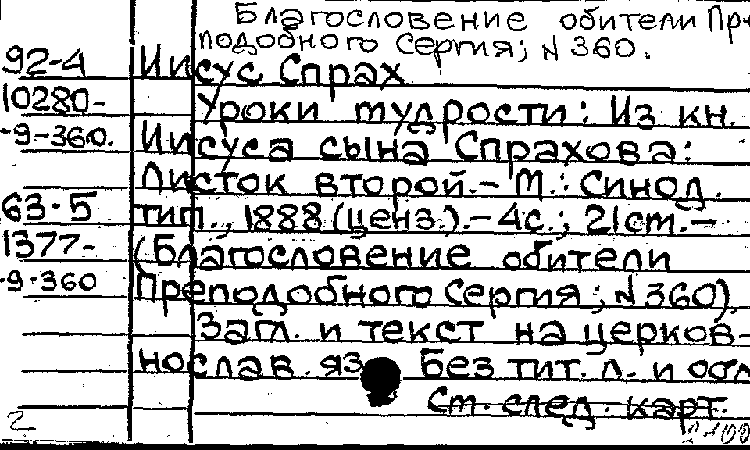 Благословение обители Пр
подобного Сергия; N 360.
92-4 Иисус Сирах
10280- Уроки мудрости: Из кн.
-9-360. Иисуса сына Сирахова:
Листок второй.- М.: Синод.
63-5 тип., 1888 (ценз.).- 4с.; 21см.-
1377- (Благословение обители
-9-360 Преподобного Сергия; N 360).
Загл. и текст на церков-
нослав. яз. Без тит. л. и обл
См. след. карт.
2